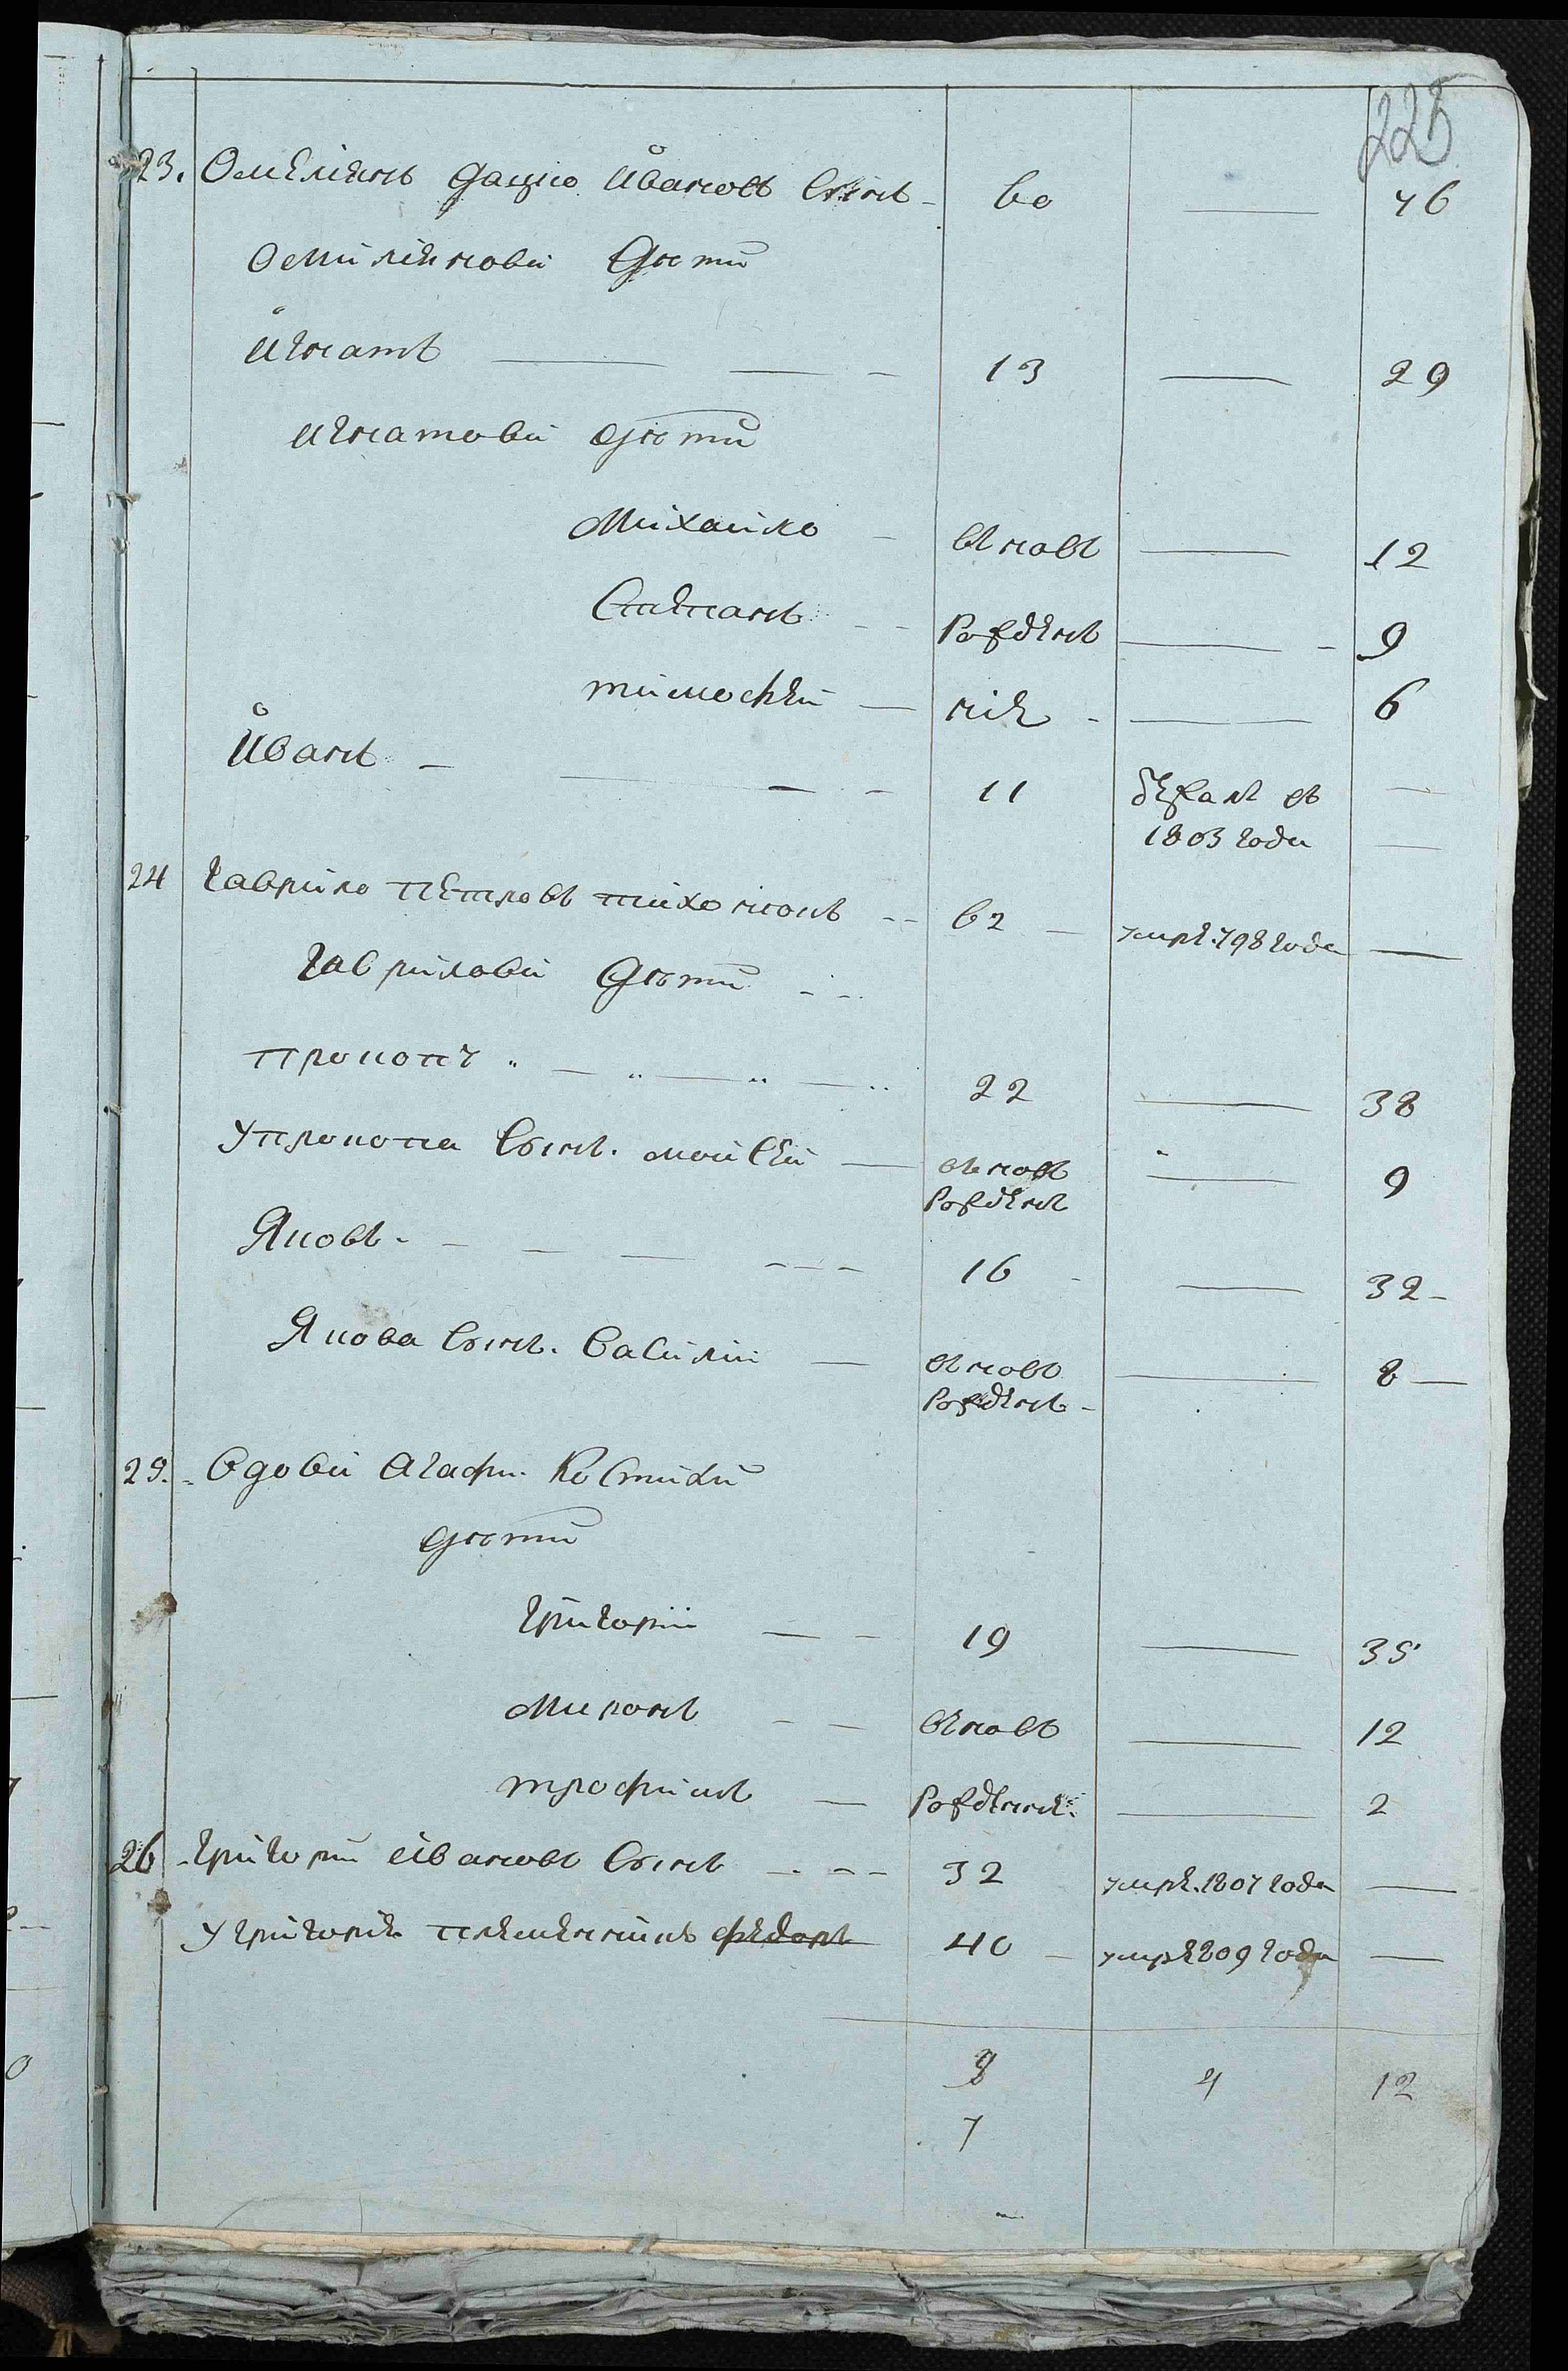 225
23. Омелiянъ Дацко Ивановъ Сынъ - 60 — 76
Омилiянови Дѣти
Игнатъ — 13 — 29
Игнатови Дѣти
Михайло - вновь — 12
Степанъ - - Рожденъ — 9
Тимофей — нiе - — 6
Иванъ - — 11 бежалъ въ —
1803 года —
24 Гаврило Петровъ Тихоновъ - - 62 — умре. 798 года —
Гавриловы Дѣти - -
Прокопъ — 22 — 38
У Прокопа Сынъ. Мойсей — вновь — 9
Рожденъ
Яковъ - - — - - - 16 - — 32 -
Якова Сынъ. Василiй — вновь — 8 —
Рожденъ -
25. Вдовы Агафiи Костихи
Дѣти
Григорiй — - 19 — 35
Миронъ - — вновь — 12
Трофимъ — Рожденне — 2
26 Григорiй Ивановъ Сынъ - - - 32 умре. 1807 года —
У Григорiя племенникъ Федоръ 40 — умре 809 года —
8 4 12
7